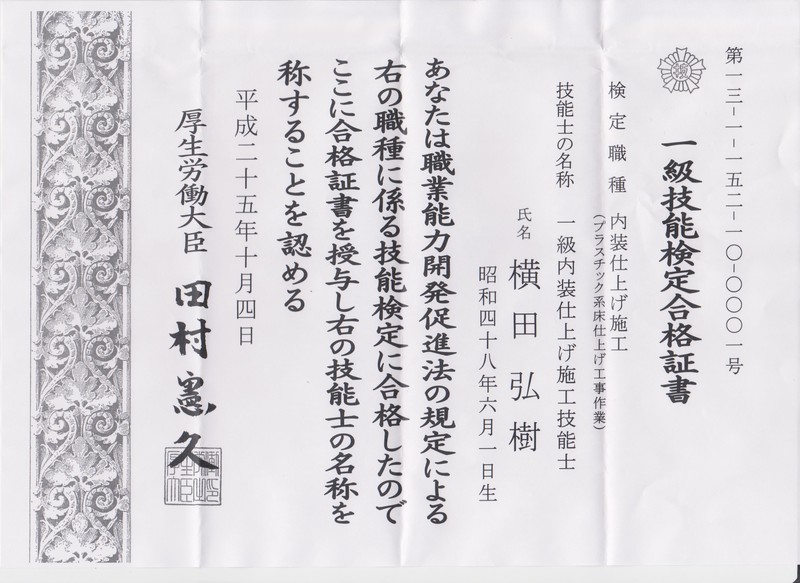 第一三-一-一五二-一〇-〇〇〇一号
一級技能検定合格証書
検定職種 内装仕上げ施工
(プラスチック系床仕上げ工事作業)
技能士の名称 一級内装仕上げ施工技能士
氏名 横田弘樹
昭和四十八年六月一日生
あなたは職業能力開発促進法の規定による
右の職種に係る技能検定に合格したので
ここに合格証書を授与し右の技能士の名称を
称することを認める
平成二十五年十月四日
厚生労働大臣 田村憲久